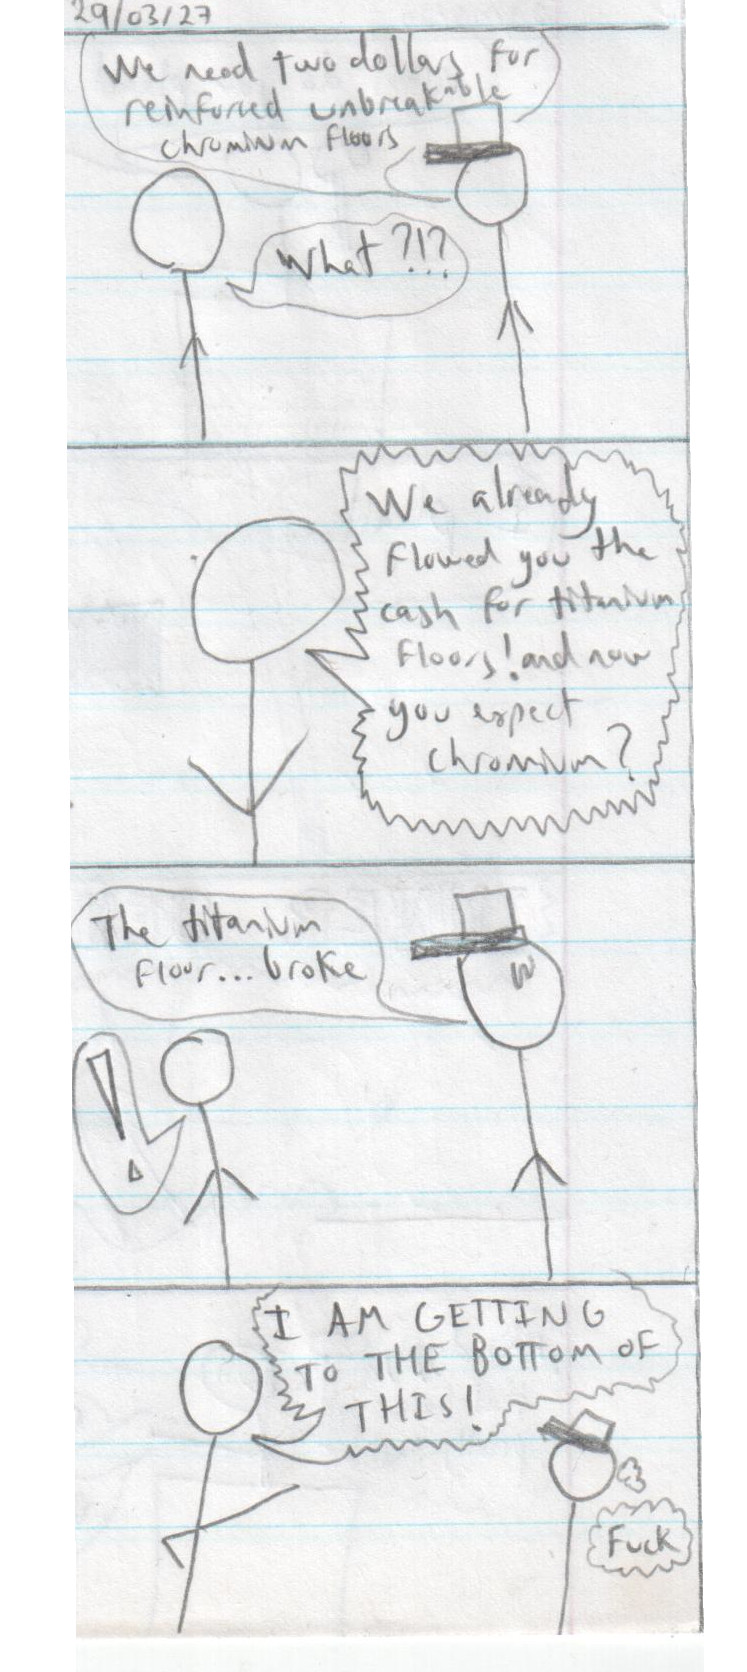 29/03/27
We need two dollars for
reinforced unbreakable
chromium floors
What?!?
We already
flowed you the
cash for titanium
floors! and now
you expect
chromium?
The titanium
floor... broke
!
I AM GETTING
TO THE BOTTOM OF
THIS!
Fuck